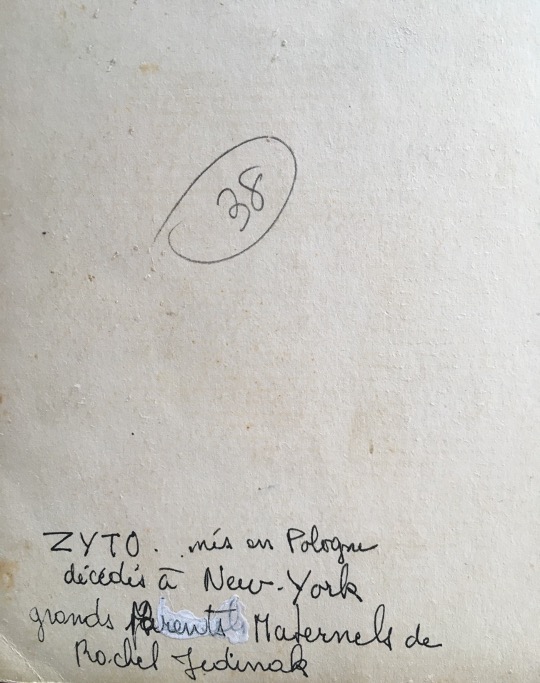 38
ZYTO. nés en Pologne
décédés à New-York
grands Parents Maternels de
Rachel Jedinak